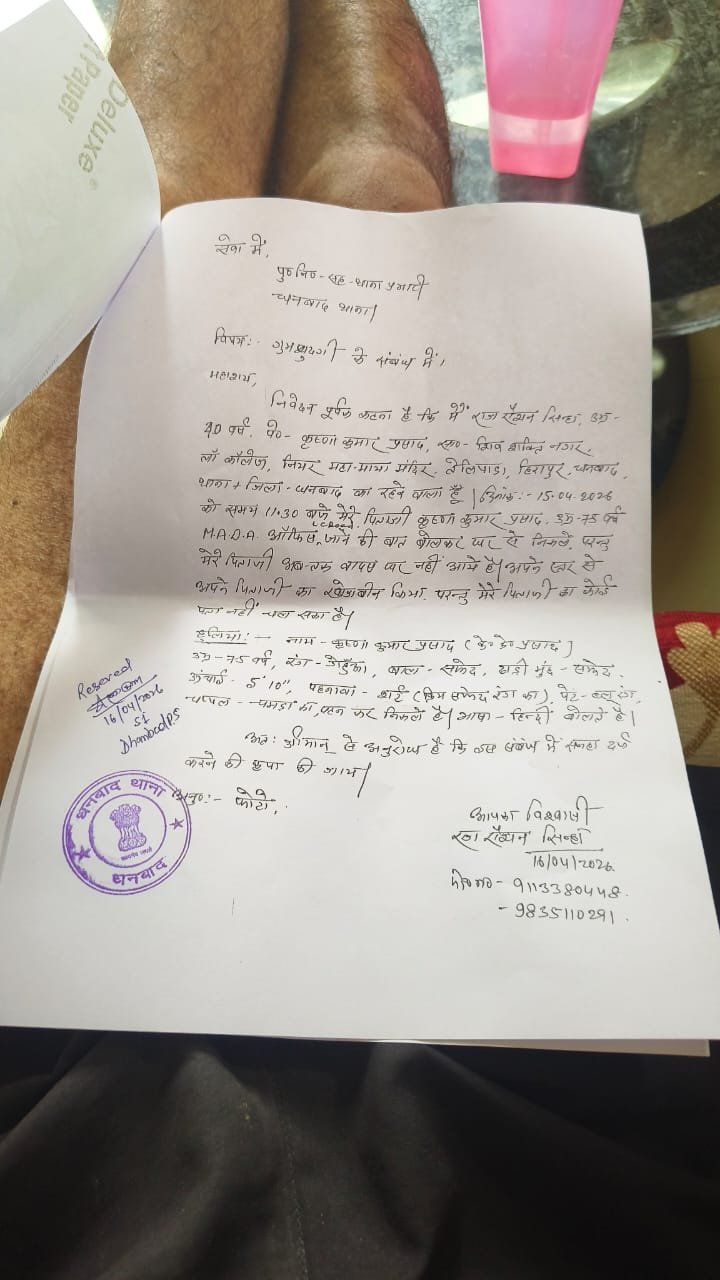 Deluxe
Paper
सेवा में,
पु०नि०-सह-थाना प्रभारी
धनबाद थाना।
विषय:- गुमशुदगी के संबंध में।
महाशय,
निवेदन पूर्वक कहना है कि मैं राज सिन्हा, उम्र-
40 वर्ष, पे०- कृष्णा कुमार प्रसाद, सा०- शिव शक्ति नगर,
लॉ कॉलेज, नियर महा-माया मंदिर, तेलिपाड़ा, हिरापुर, धनबाद,
थाना + जिला- धनबाद का रहने वाला हूँ। दिनांक:- 15-04-2026
को समय 11:30 बजे मेरे पिताजी कृष्णा कुमार प्रसाद, उम्र-75 वर्ष
M.A.D.A. ऑफिस जाने की बात बोलकर घर से निकले, परन्तु
मेरे पिताजी अब-तक वापस घर नहीं आये है। अपने स्तर से
अपने पिताजी का खोजबीन किया, परन्तु मेरे पिताजी का कोई
पता नहीं चल सका है।
हुलिया:- नाम- कृष्णा कुमार प्रसाद (के० के० प्रसाद)
उम्र-75 वर्ष, रंग- गेहुँआ, बाल- सफेद, दाढ़ी मुंछ- सफेद,
ऊंचाई- 5'10", पहनावा- शर्ट (क्रिम सफेद रंग का), पेंट- ब्लू रंग,
चप्पल- चमड़ा का, पहन कर निकले है। भाषा- हिन्दी बोलते है।
अत: श्रीमान् से अनुरोध है कि इस संबंध में सनहा दर्ज
करने की कृपा की जाय।
अनु०:- फोटो,
Reserved
16/04/2026
SI
Dhanbad PS
धनबाद थाना
सत्यमेव जयते
धनबाद
आपका विश्वासी
राज सिन्हा
16/04/2026
मो०नं०- 9113380448.
- 9835110291.